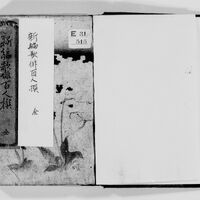 E 31
515
新編歌俳百人撰 全
新編歌俳百人撰 全